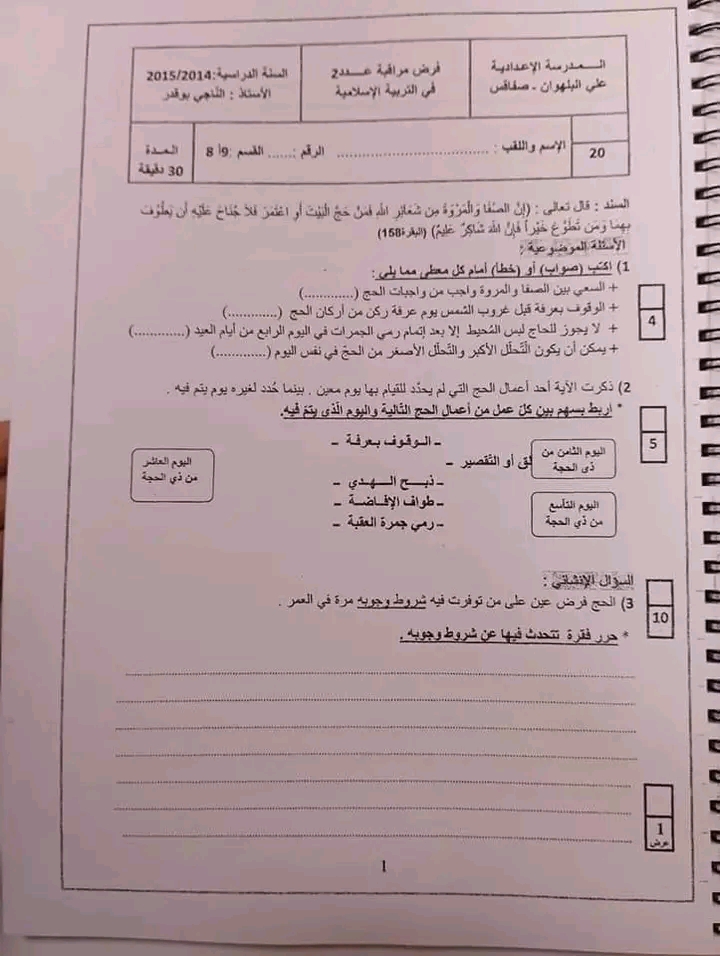 المدرسة الإعدادية
علي البلهوان - صفاقس
فرض مراقبة عدد2
في التربية الإسلامية
السنة الدراسية:2015/2014
الأستاذ : الناجي بوقدر
20
الإسم واللقب : ........................................ الرقم : ...... القسم :9أ 8
المدة
30 دقيقة
السند : قال تعالى : (إِنَّ الصَّفَا وَالْمَرْوَةَ مِن شَعَائِرِ اللهِ فَمَنْ حَجَّ الْبَيْتَ أَوِ اعْتَمَرَ فَلاَ جُنَاحَ عَلَيْهِ أَن يَطَّوَّفَ
بِهِمَا وَمَن تَطَوَّعَ خَيْراً فَإِنَّ اللهَ شَاكِرٌ عَلِيمٌ) (البقرة158)
الأسئلة الموضوعية :
1) اكتب (صواب) أو (خطأ) أمام كل معطى مما يلي :
+ السعي بين الصفا والمروة واجب من واجبات الحج (.............)
+ الوقوف بعرفة قبل غروب الشمس يوم عرفة ركن من أركان الحج (.............)
+ لا يجوز للحاج لبس المُحيط إلا بعد إتمام رمي الجمرات في اليوم الرابع من أيام العيد (.............)
+ يمكن أن يكون التّحلّل الأكبر والتّحلّل الأصغر من الحجّ في نفس اليوم (.............)
4
2) ذكرت الآية أحد أعمال الحج التي لم يحدّد للقيام بها يوم معين . بينما حُدد لغيره يوم يتم فيه .
* اربط بسهم بين كلّ عمل من أعمال الحج التّالية واليوم الّذي يتمّ فيه.
5
- الوقوف بعرفة -
لق أو التّقصير -
- ذبح الهدي -
- طواف الإفاضة -
- رمي جمرة العقبة -
اليوم الثامن من
ذي الحجة
اليوم التّاسع
من ذي الحجة
اليوم العاشر
من ذي الحجة
السؤال الإنشائي :
3) الحج فرض عين على من توفرت فيه شروط وجوبه مرة في العمر .
* حرر فقرة تتحدث فيها عن شروط وجوبه .
10
1
عرض
1